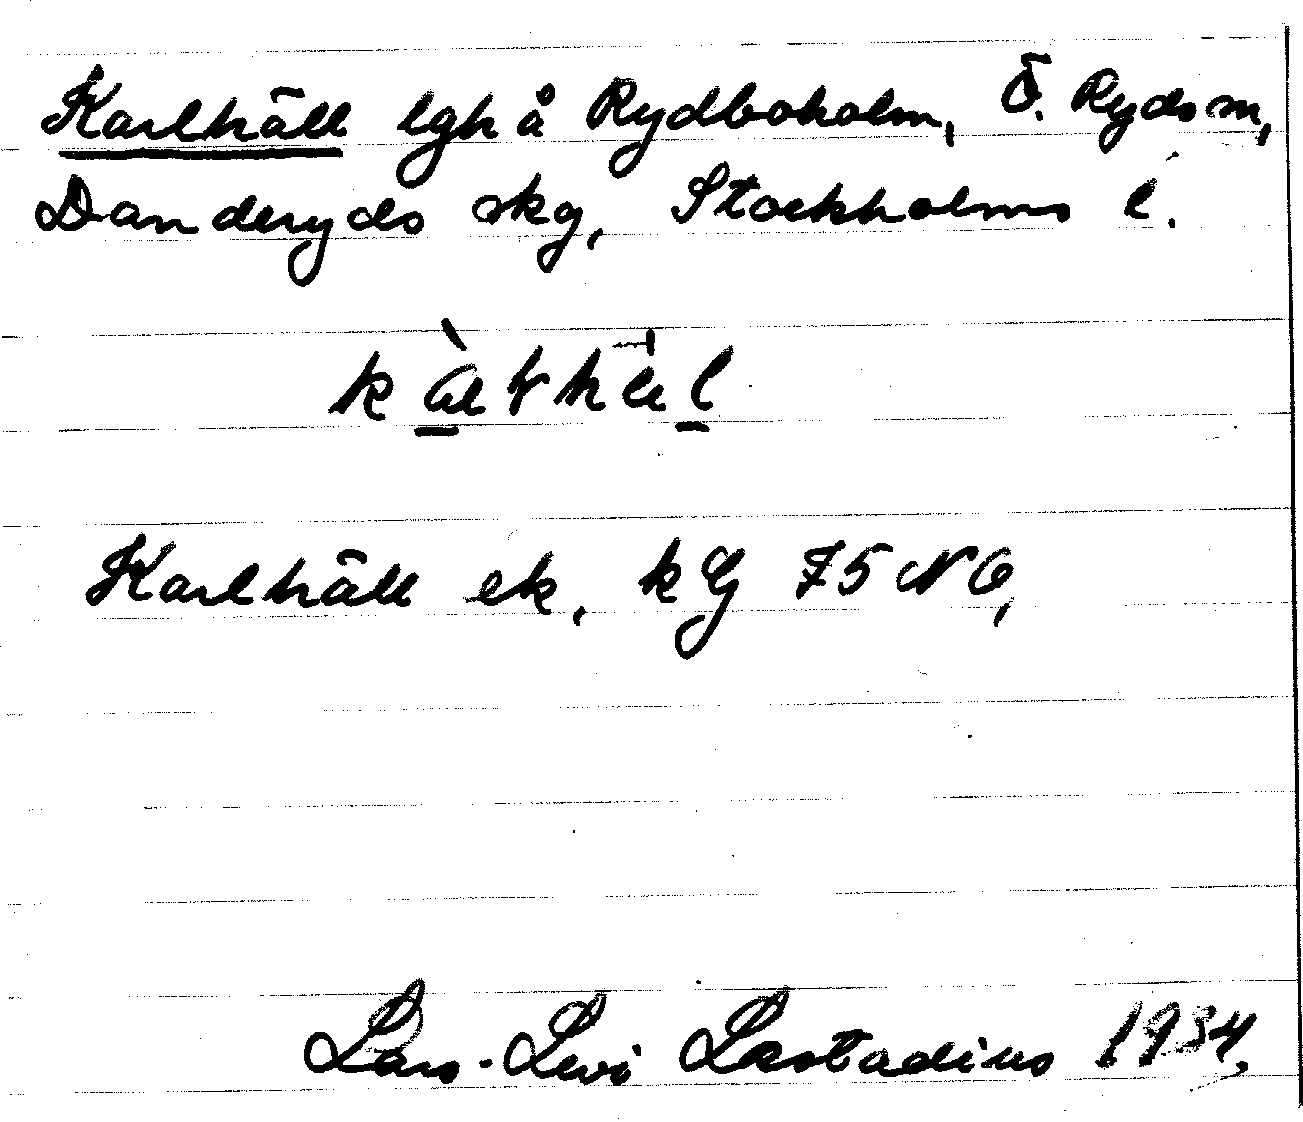 Karlhäll lgh å Rydboholm, Ö. Ryds sn,
Danderyds skg, Stockholms l.
Karlhäll ek. kG 75 NO,
Lars-Levi Læstadius 1934.